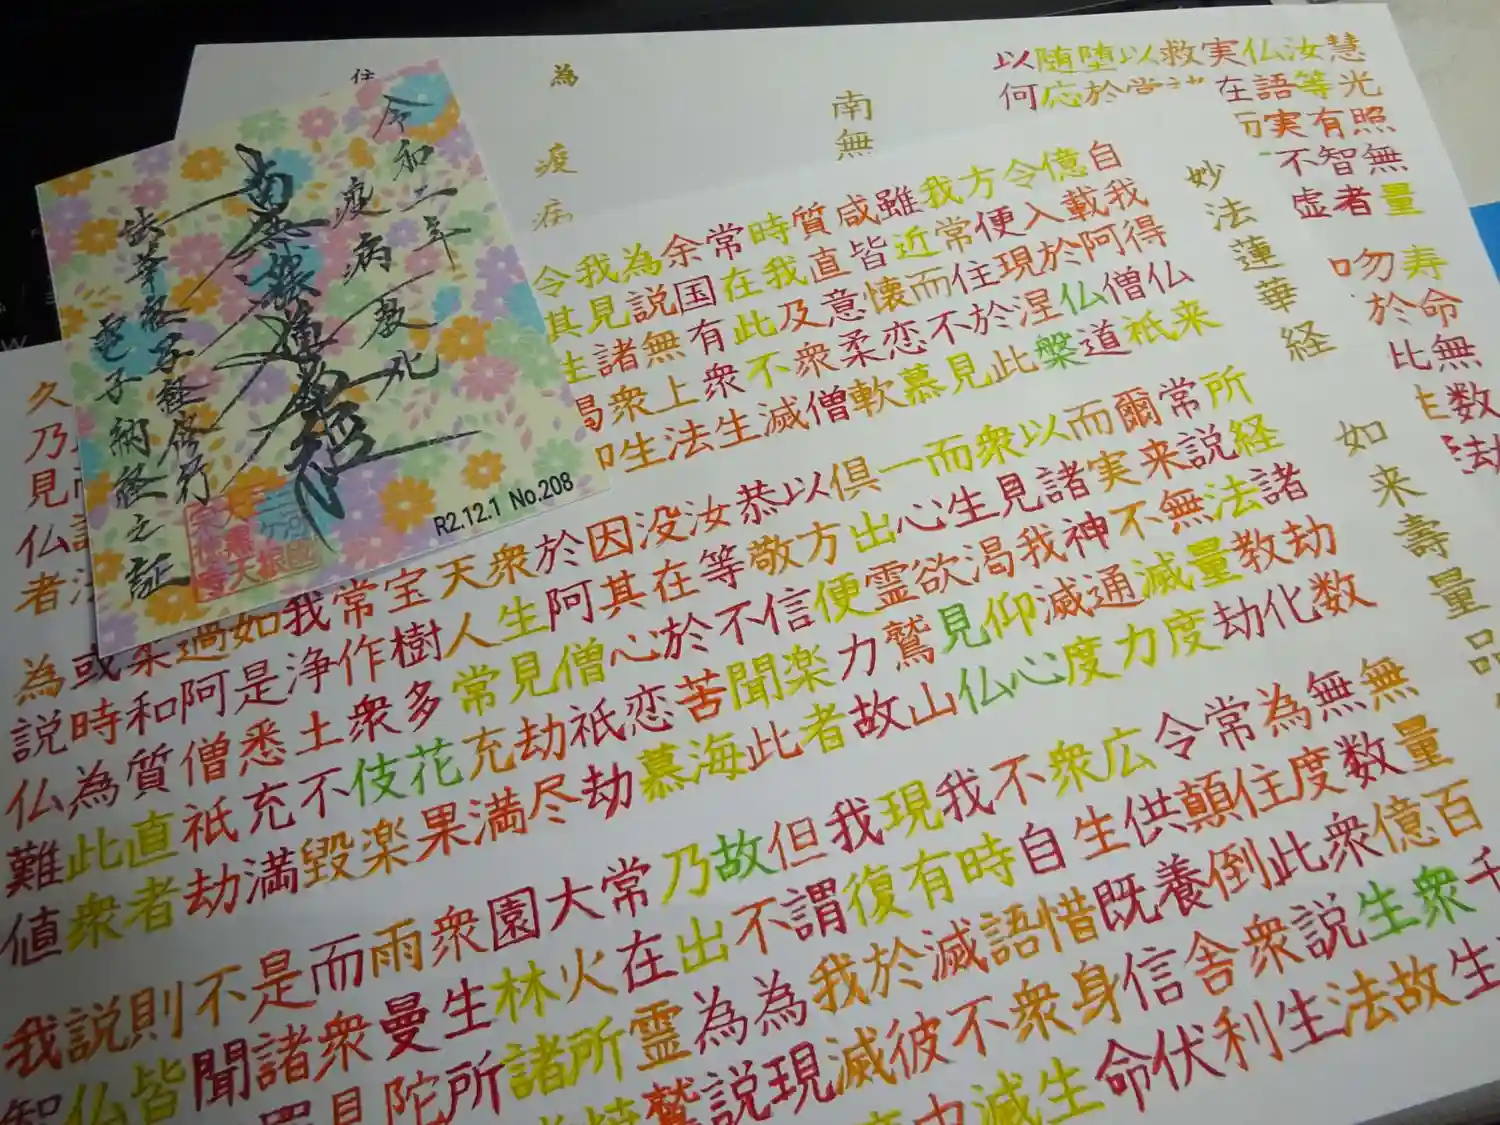 慧光照無量
寿命無数劫
汝等有智者
仏語実不虚
南無
為疫病
住
妙法蓮華経如来壽量品
自我得仏来
億載阿僧祇
令入於仏道
方便現涅槃
我常住於此
雖近而不見
咸皆懐恋慕
質直意柔軟
時我及衆僧
常在此不滅
余国有衆生
為説無上法
我見諸衆生
令其生
所経諸劫数
常説法教化
爾来無量劫
而実不滅度
以諸神通力
衆見我滅度
而生渇仰心
一心欲見仏
倶出霊鷲山
以方便力故
恭敬信楽者
汝等不聞此
没在於苦海
因其心恋慕
於阿僧祇劫
衆生見劫尽
天人常充満
宝樹多花果
常作衆伎楽
我浄土不毀
如是悉充満
過阿僧祇劫
柔和質直者
或時為此衆
為説仏難値
久乃見仏者
無量百千
無数億衆生
為度衆生故
常住此説法
令顛倒衆生
広供養舎利
衆生既信伏
不自惜身命
我時語衆生
現有滅不滅
我復於彼中
但謂我
故不為説
乃出為
常在霊鷲
大火所焼
園林諸
衆生所
雨曼陀
而衆見
是諸罪
不聞
則皆
説仏
我智
令和二年
疫病教化
南無妙法蓮華経
法華経写経修行
電子納経之証
R2.12.1 No.208